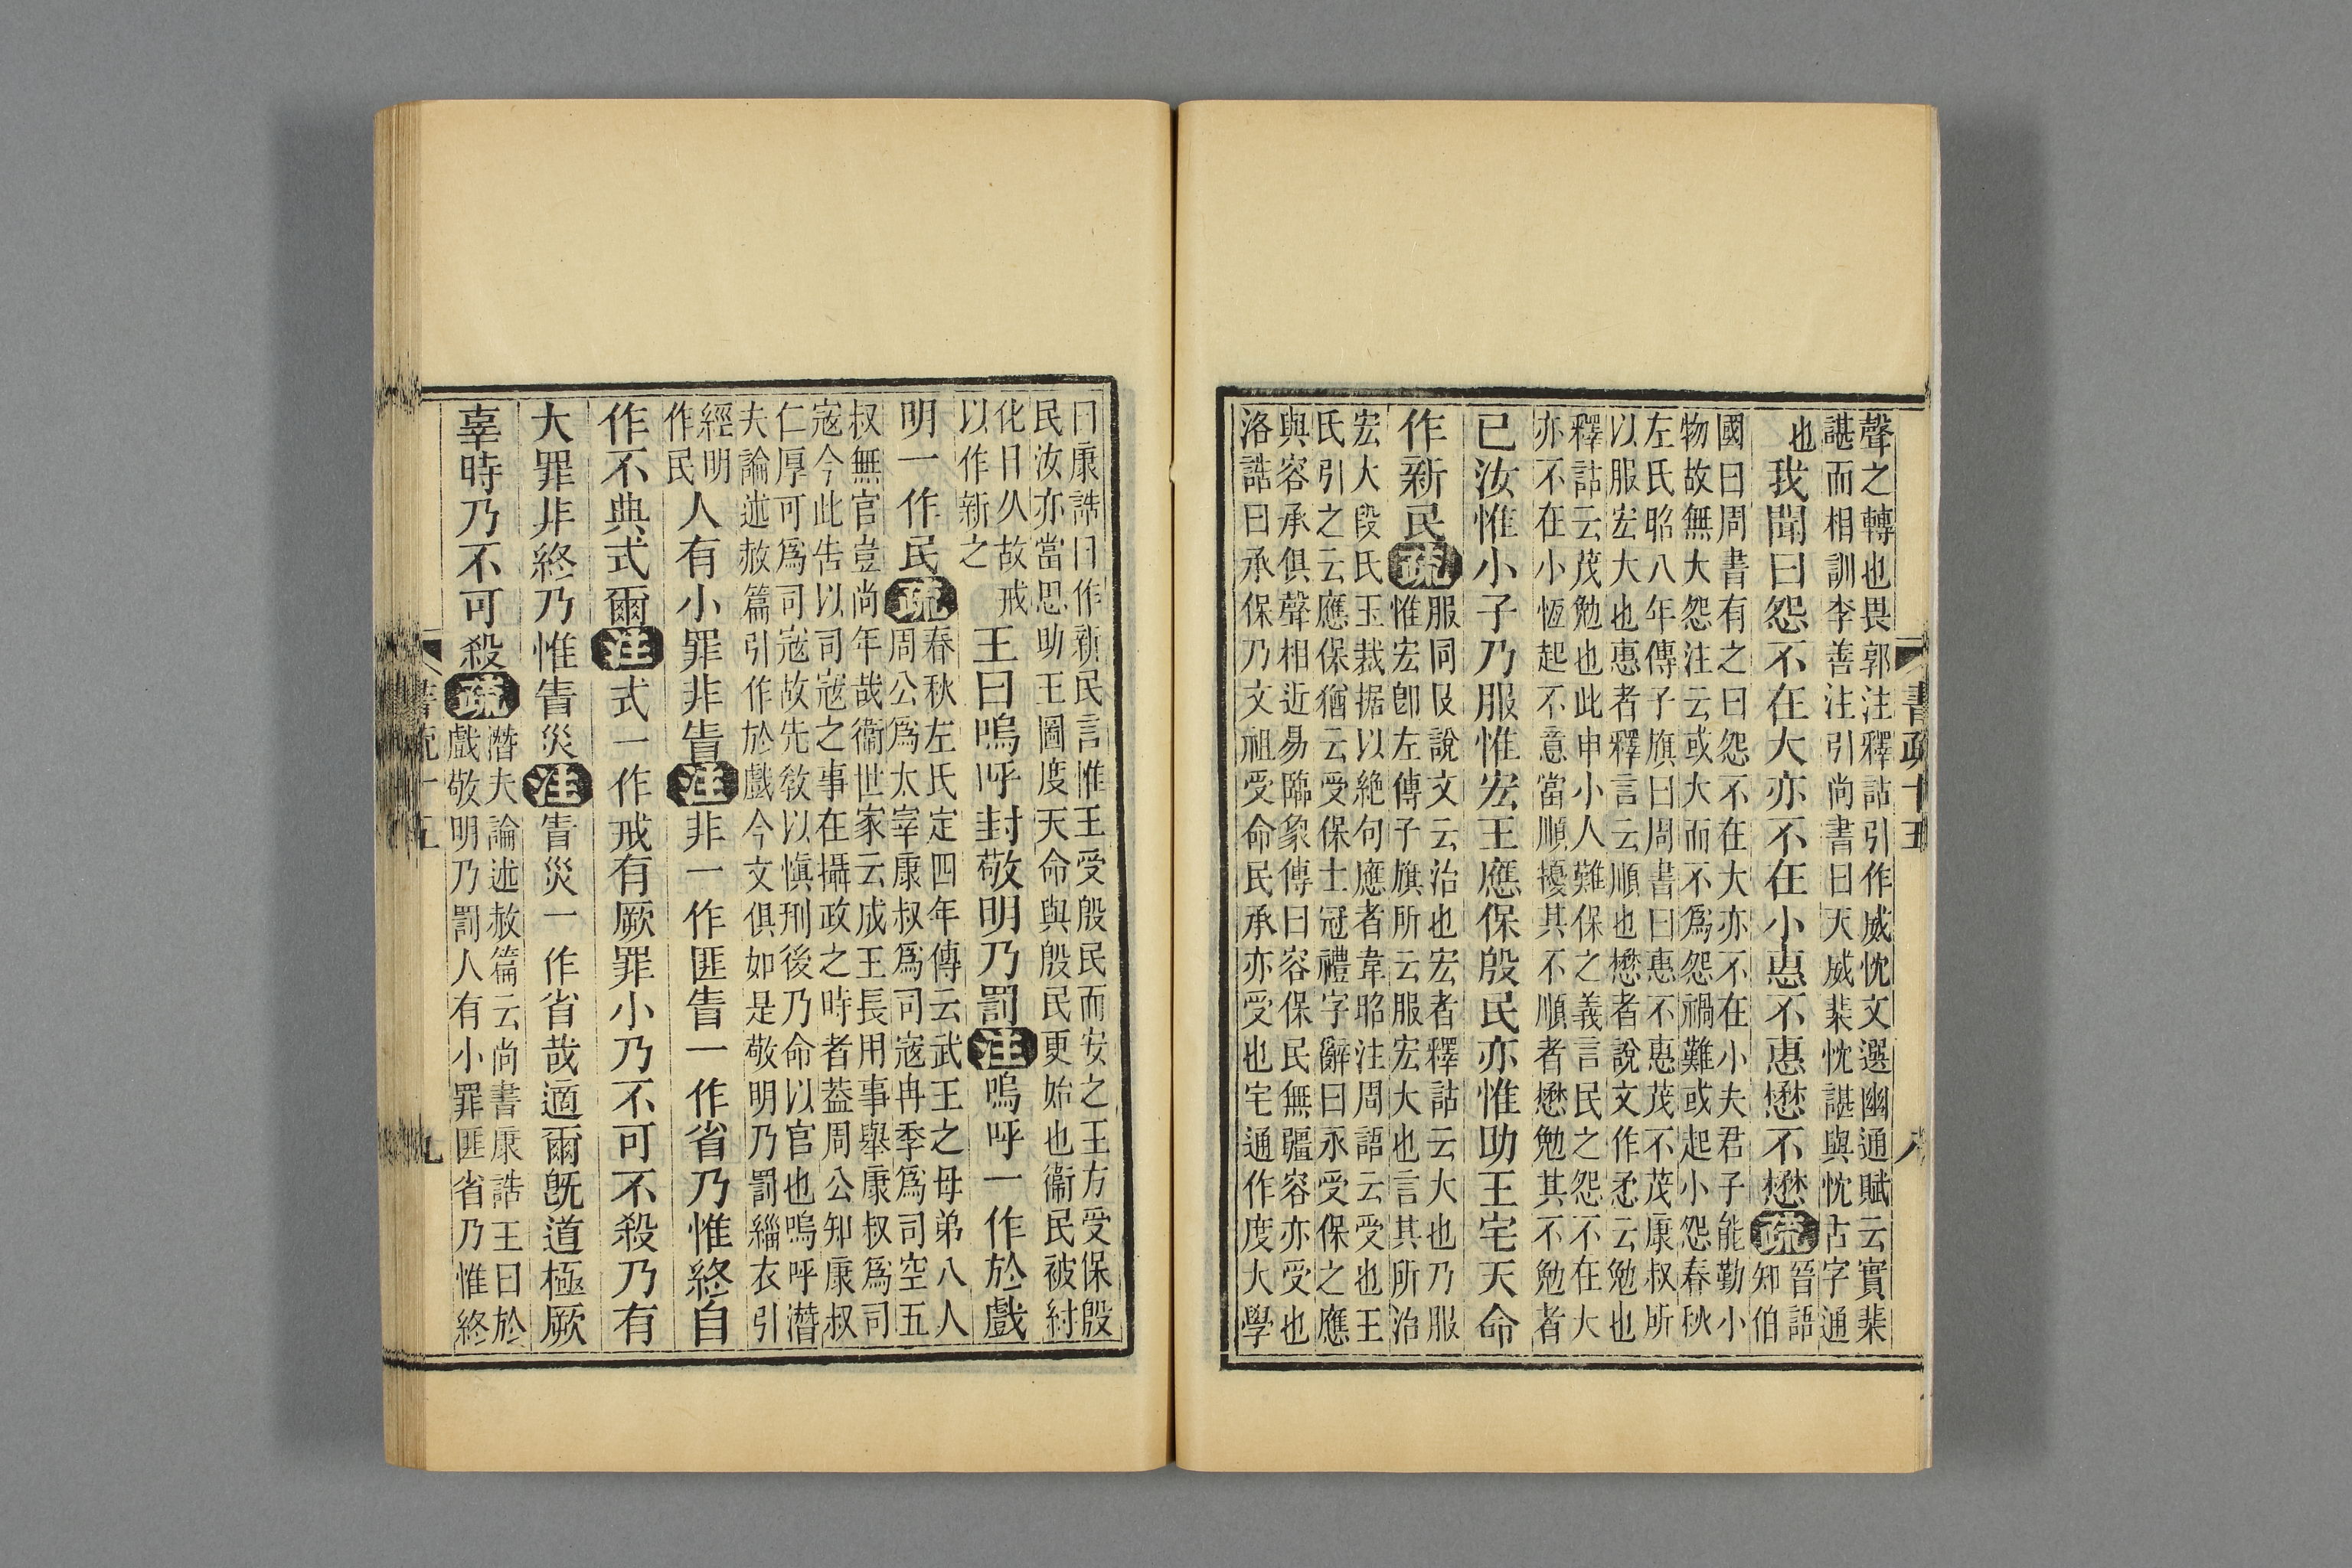 書疏十五
八
聲之轉也畏郭注釋詁引作威忱文選幽通賦云實棐
諶而相訓李善注引尚書曰天威棐忱諶與忱古字通
也
我聞曰怨不在大亦不在小惠不惠懋不懋疏
晉語
知伯
國曰周書有之曰怨不在大亦不在小夫君子能勤小
物故無大怨注云或大而不爲怨禍難或起小怨春秋
左氏昭八年傳子旗曰周書曰惠不惠茂不茂康叔所
以服宏大也惠者釋言云順也懋者說文作云勉也
釋詁云茂勉也此申小人難保之義言民之怨不在大
亦不在小恆起不意當順擾其不順者懋勉其不勉者
已汝惟小子乃服惟宏王應保殷民亦惟助王宅天命
作新民疏
服同𠬝說文云治也宏者釋詁云大也乃服
惟宏卽左傳子旗所云服宏大也言其所治
宏大段氏玉裁据以絶句應者韋昭注周語云受也王
氏引之云應保猶云受保士冠禮字辭曰永受保之應
與容承俱聲相近易臨象傳曰容保民無疆容亦受也
洛誥曰承保乃文祖受命民承亦受也宅通作度大學
曰康誥曰作新民言惟王受殷民而安之王方受保殷
民汝亦當思助王圖度天命與殷民更始也衞民被紂
化日久故戒
以作新之
王曰嗚呼封敬明乃罰注嗚呼一作於戲
明一作民疏
春秋左氏定四年傳云武王之母弟八人
周公爲太宰康叔爲司寇冉季爲司空五
叔無官豈尚年哉衞世家云成王長用事舉康叔爲司
寇今此告以司寇之事在攝政之時者葢周公知康叔
仁厚可爲司寇故先敎以愼刑後乃命以官也嗚呼潛
夫論述赦篇引作於戲今文俱如是敬明乃罰緇衣引
經明
作民
人有小罪非眚注非一作匪眚一作省乃惟終自
作不典式爾注式一作戒有厥罪小乃不可不殺乃有
大罪非終乃惟眚災注眚災一作省哉適爾旣道極厥
辜時乃不可殺疏
潛夫論述赦篇云尚書康誥王曰於
戲敬明乃罰人有小罪匪省乃惟終
九